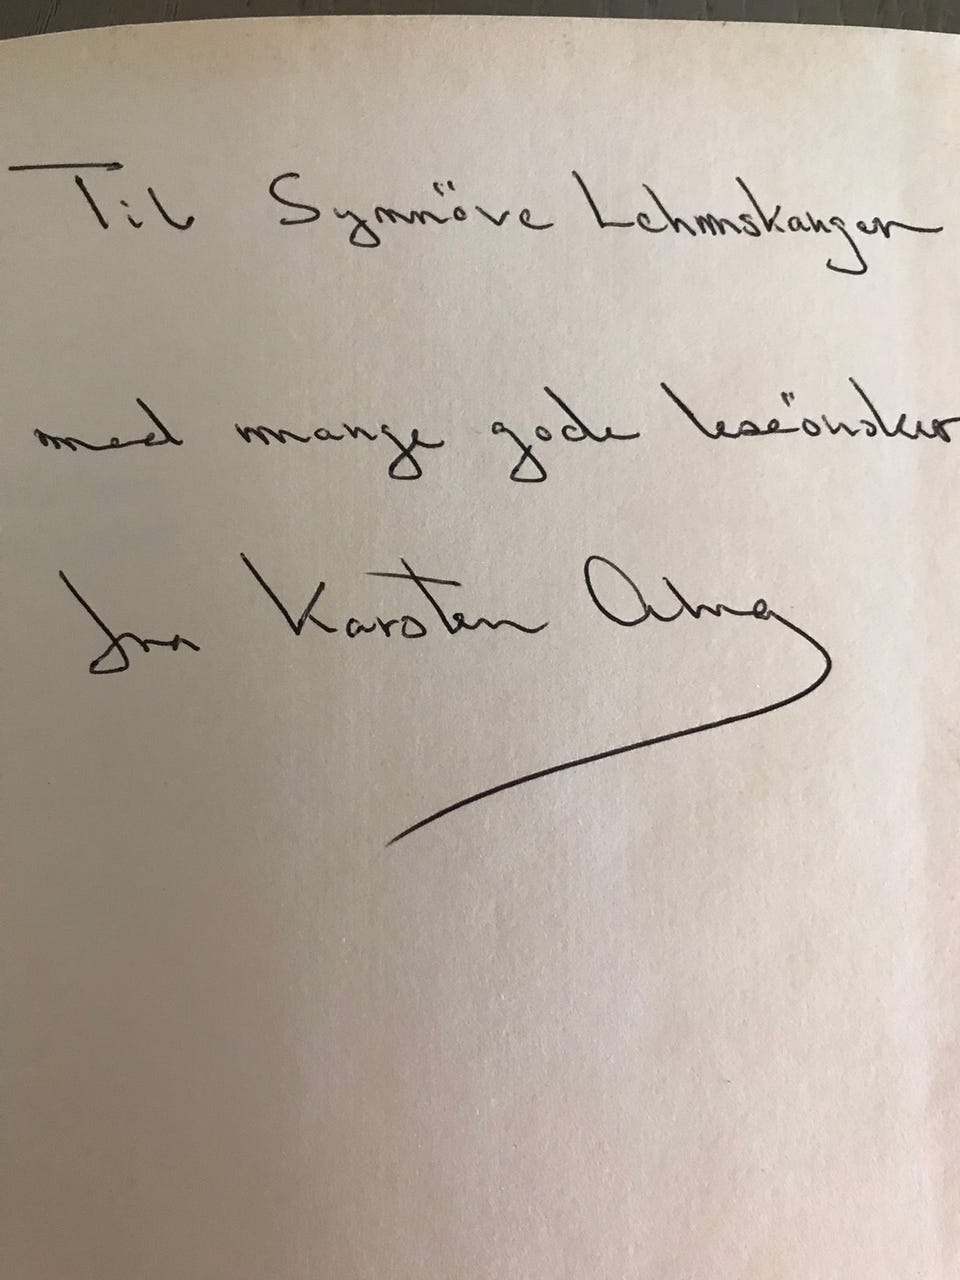 Til Synnöve Lehmskanger
med mange gode leseönsker
fra Karsten Alnæs